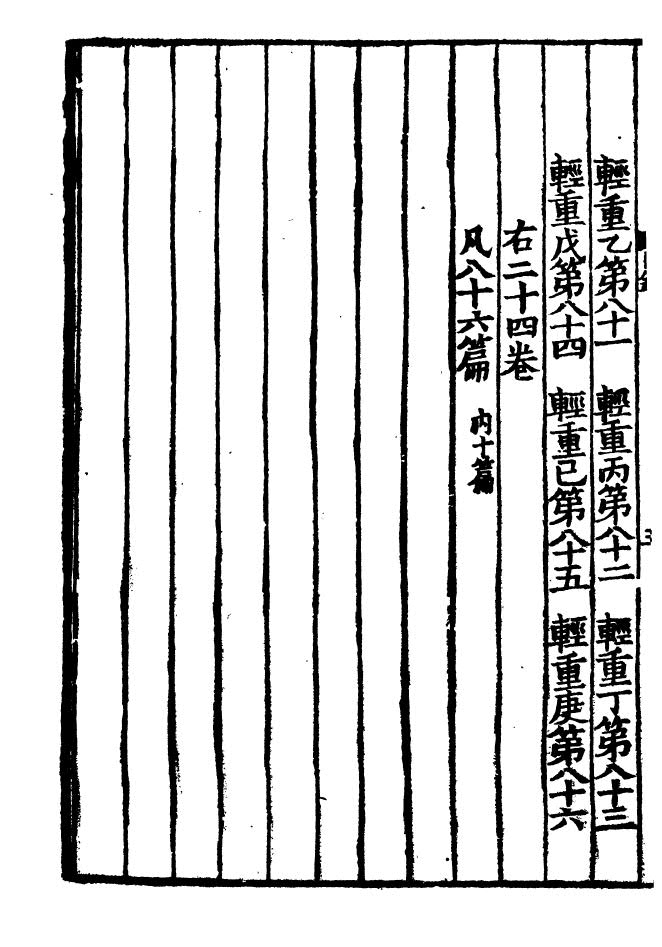 輕重乙第八十一 輕重丙第八十二 輕重丁第八十三
輕重戊第八十四 輕重己第八十五 輕重庚第八十六
右二十四卷
凡八十六篇 内十篇